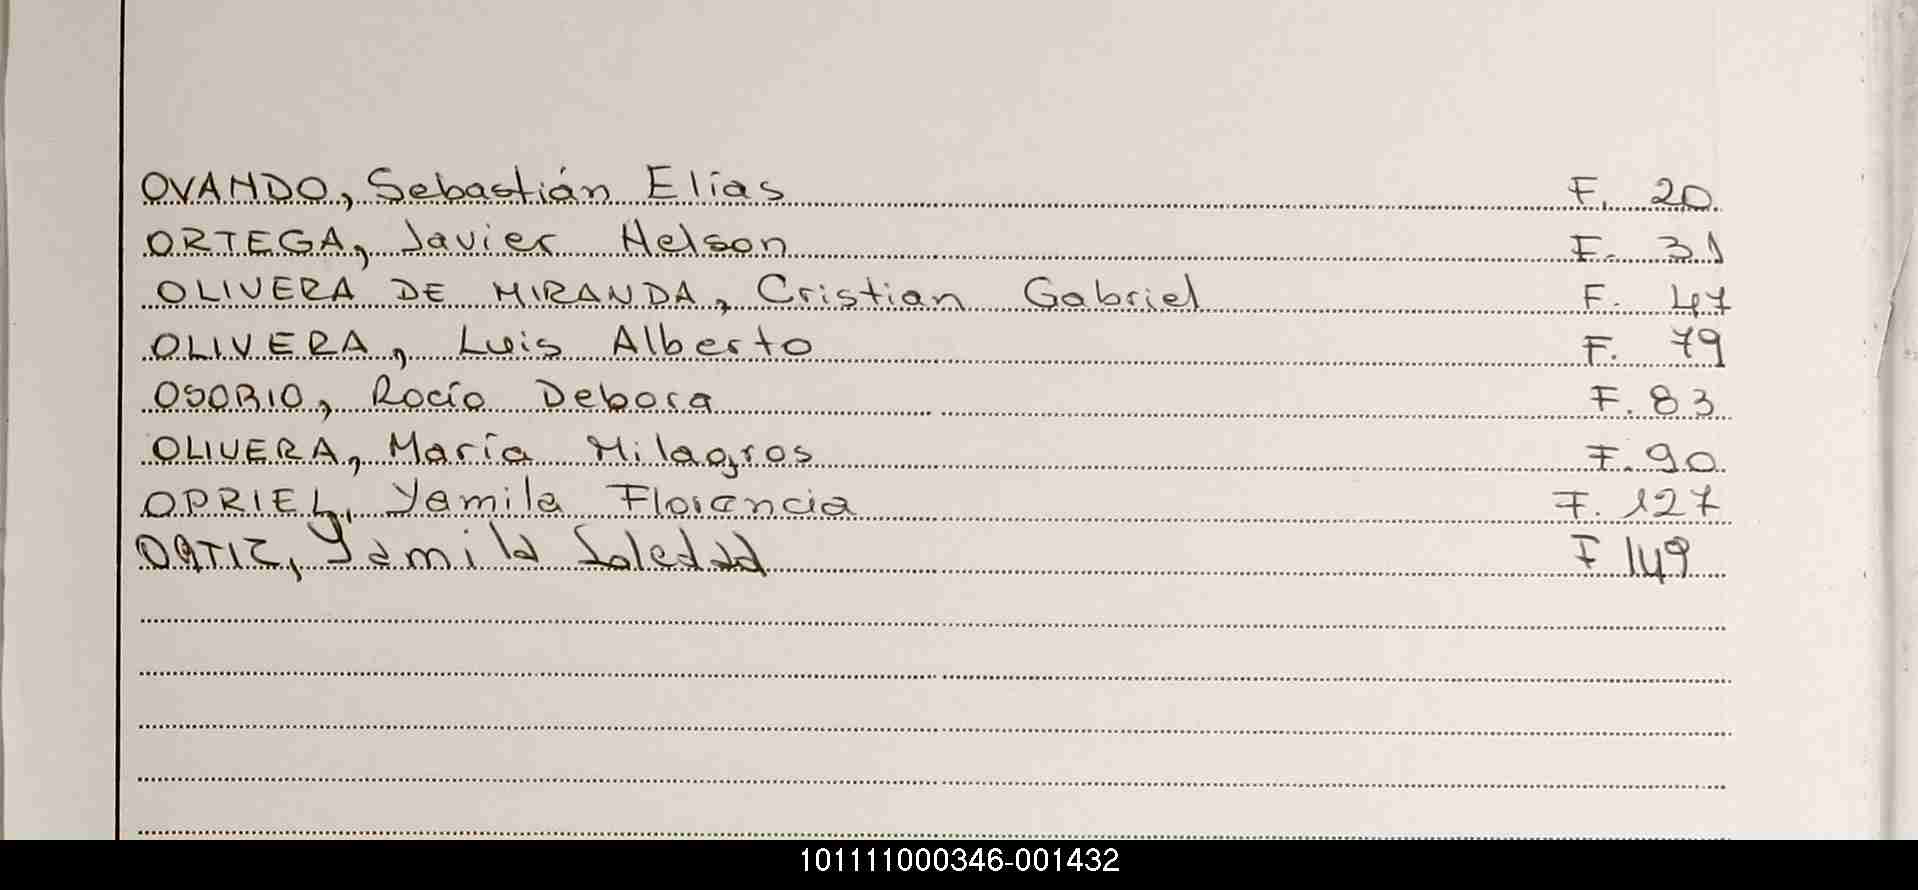 OVANDO, Sebastián Elías F. 20
ORTEGA, Javier Nelson F. 31
OLIVERA DE MIRANDA, Cristian Gabriel F. 47
OLIVERA, Luis Alberto F. 79
OSORIO, Rocío Debora F. 83
OLIVERA, María Milagros F. 90
OPRIEL, Yamila Florencia F. 127
ORTIZ, Yamila Soledad F 149
101111000346-001432